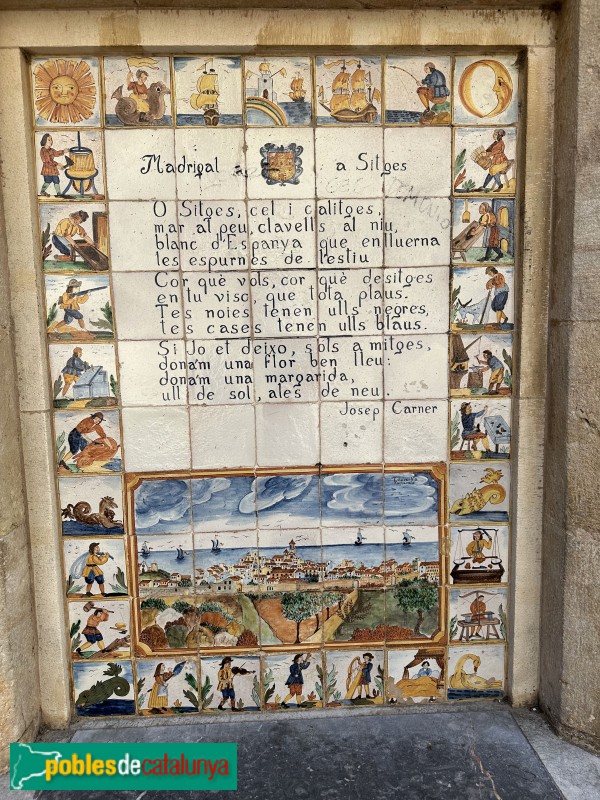 Madrigal a Sitges
O Sitges, cel i calitges,
mar al peu, clavells al niu,
blanc d'Espanya que enlluerna
les espurnes de l'estiu
Cor què vols, cor què desitges
en tu visc, que tota plaus.
Tes noies tenen ulls negres,
tes cases tenen ulls blaus.
Si Jo et deixo, sols a mitges,
dona'm una flor ben lleu:
dona'm una margarida,
ull de sol, ales de neu.
Josep Carner
poblesdecatalunya